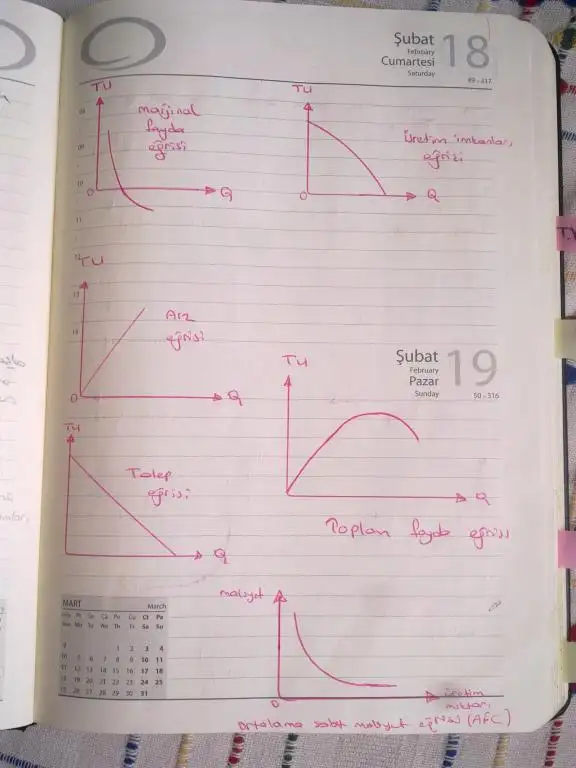 Şubat 18
February
Cumartesi
Saturday
49 - 317
TU
marjinal
fayda
eğrisi
0
Q
TU
Üretim imkanları
eğrisi
0
Q
TU
Arz
eğrisi
0
Q
Şubat 19
February
Pazar
Sunday
50 - 316
TU
Q
Toplam fayda eğrisi
TU
Talep
eğrisi
Q
MART March
1 2 3 4
5 6 7 8 9 10 11
12 13 14 15 16 17 18
19 20 21 22 23 24 25
26 27 28 29 30 31
maliyet
0
üretim
miktarı
ortalama sabit maliyet eğrisi (AFC)